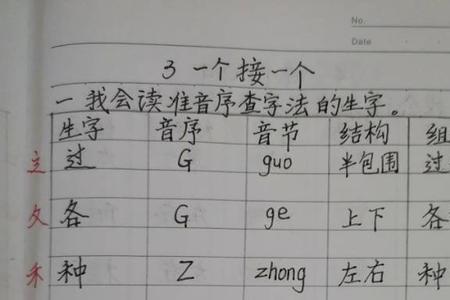 No.
Date
3 一个接一个
一 我会读准音序查字法的生字。
生字 音序 音节 结构 组
过 G guo 半包围 过
文 各 G ge 上下 各
禾 种 Z zhong 左右 种